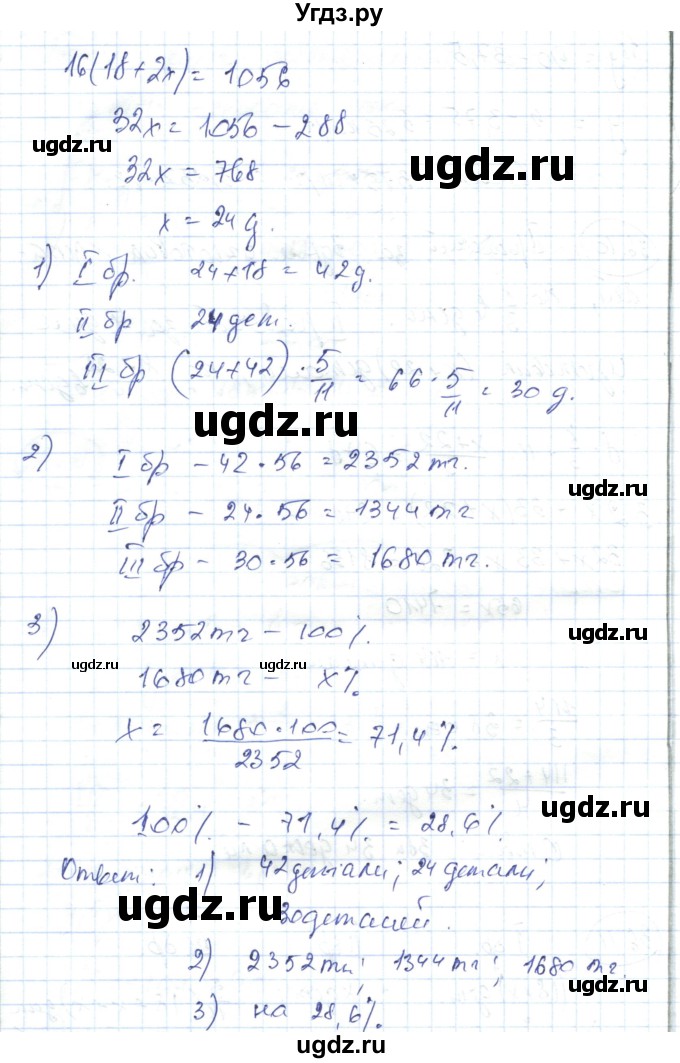 Угдз.ру
16(18+2x) = 1056
ugdz.ru
ugdz.ru
32x = 1056 - 288
ugdz.ru
32x = 768
x = 24 д.
1) I бр. 24+18 = 42 д.
ugdz.ru
ugdz.ru
II бр 24 дет.
III бр (24+42) · 5/11 = 66 · 5/11 = 30 д.
ugdz.ru
2) I бр - 42 · 56 = 2352 тг.
II бр - 24 · 56 = 1344 тг
ugdz.ru
III бр - 30 · 56 = 1680 тг.
ugdz.ru
3) 2352 тг - 100%.
ugdz.ru
ugdz.ru ugdz.ru
1680 тг - x%
x = 1680·100/2352 = 71,4%.
ugdz.ru
100% - 71,4% = 28,6%
ugdz.ru
Ответ: 1) 42 детали; 24 детали;
ugdz.ru
30 деталей.
2) 2352 тг; 1344 тг; 1680 тг.
ugdz.ru
3) на 28,6%.
ugdz.ru